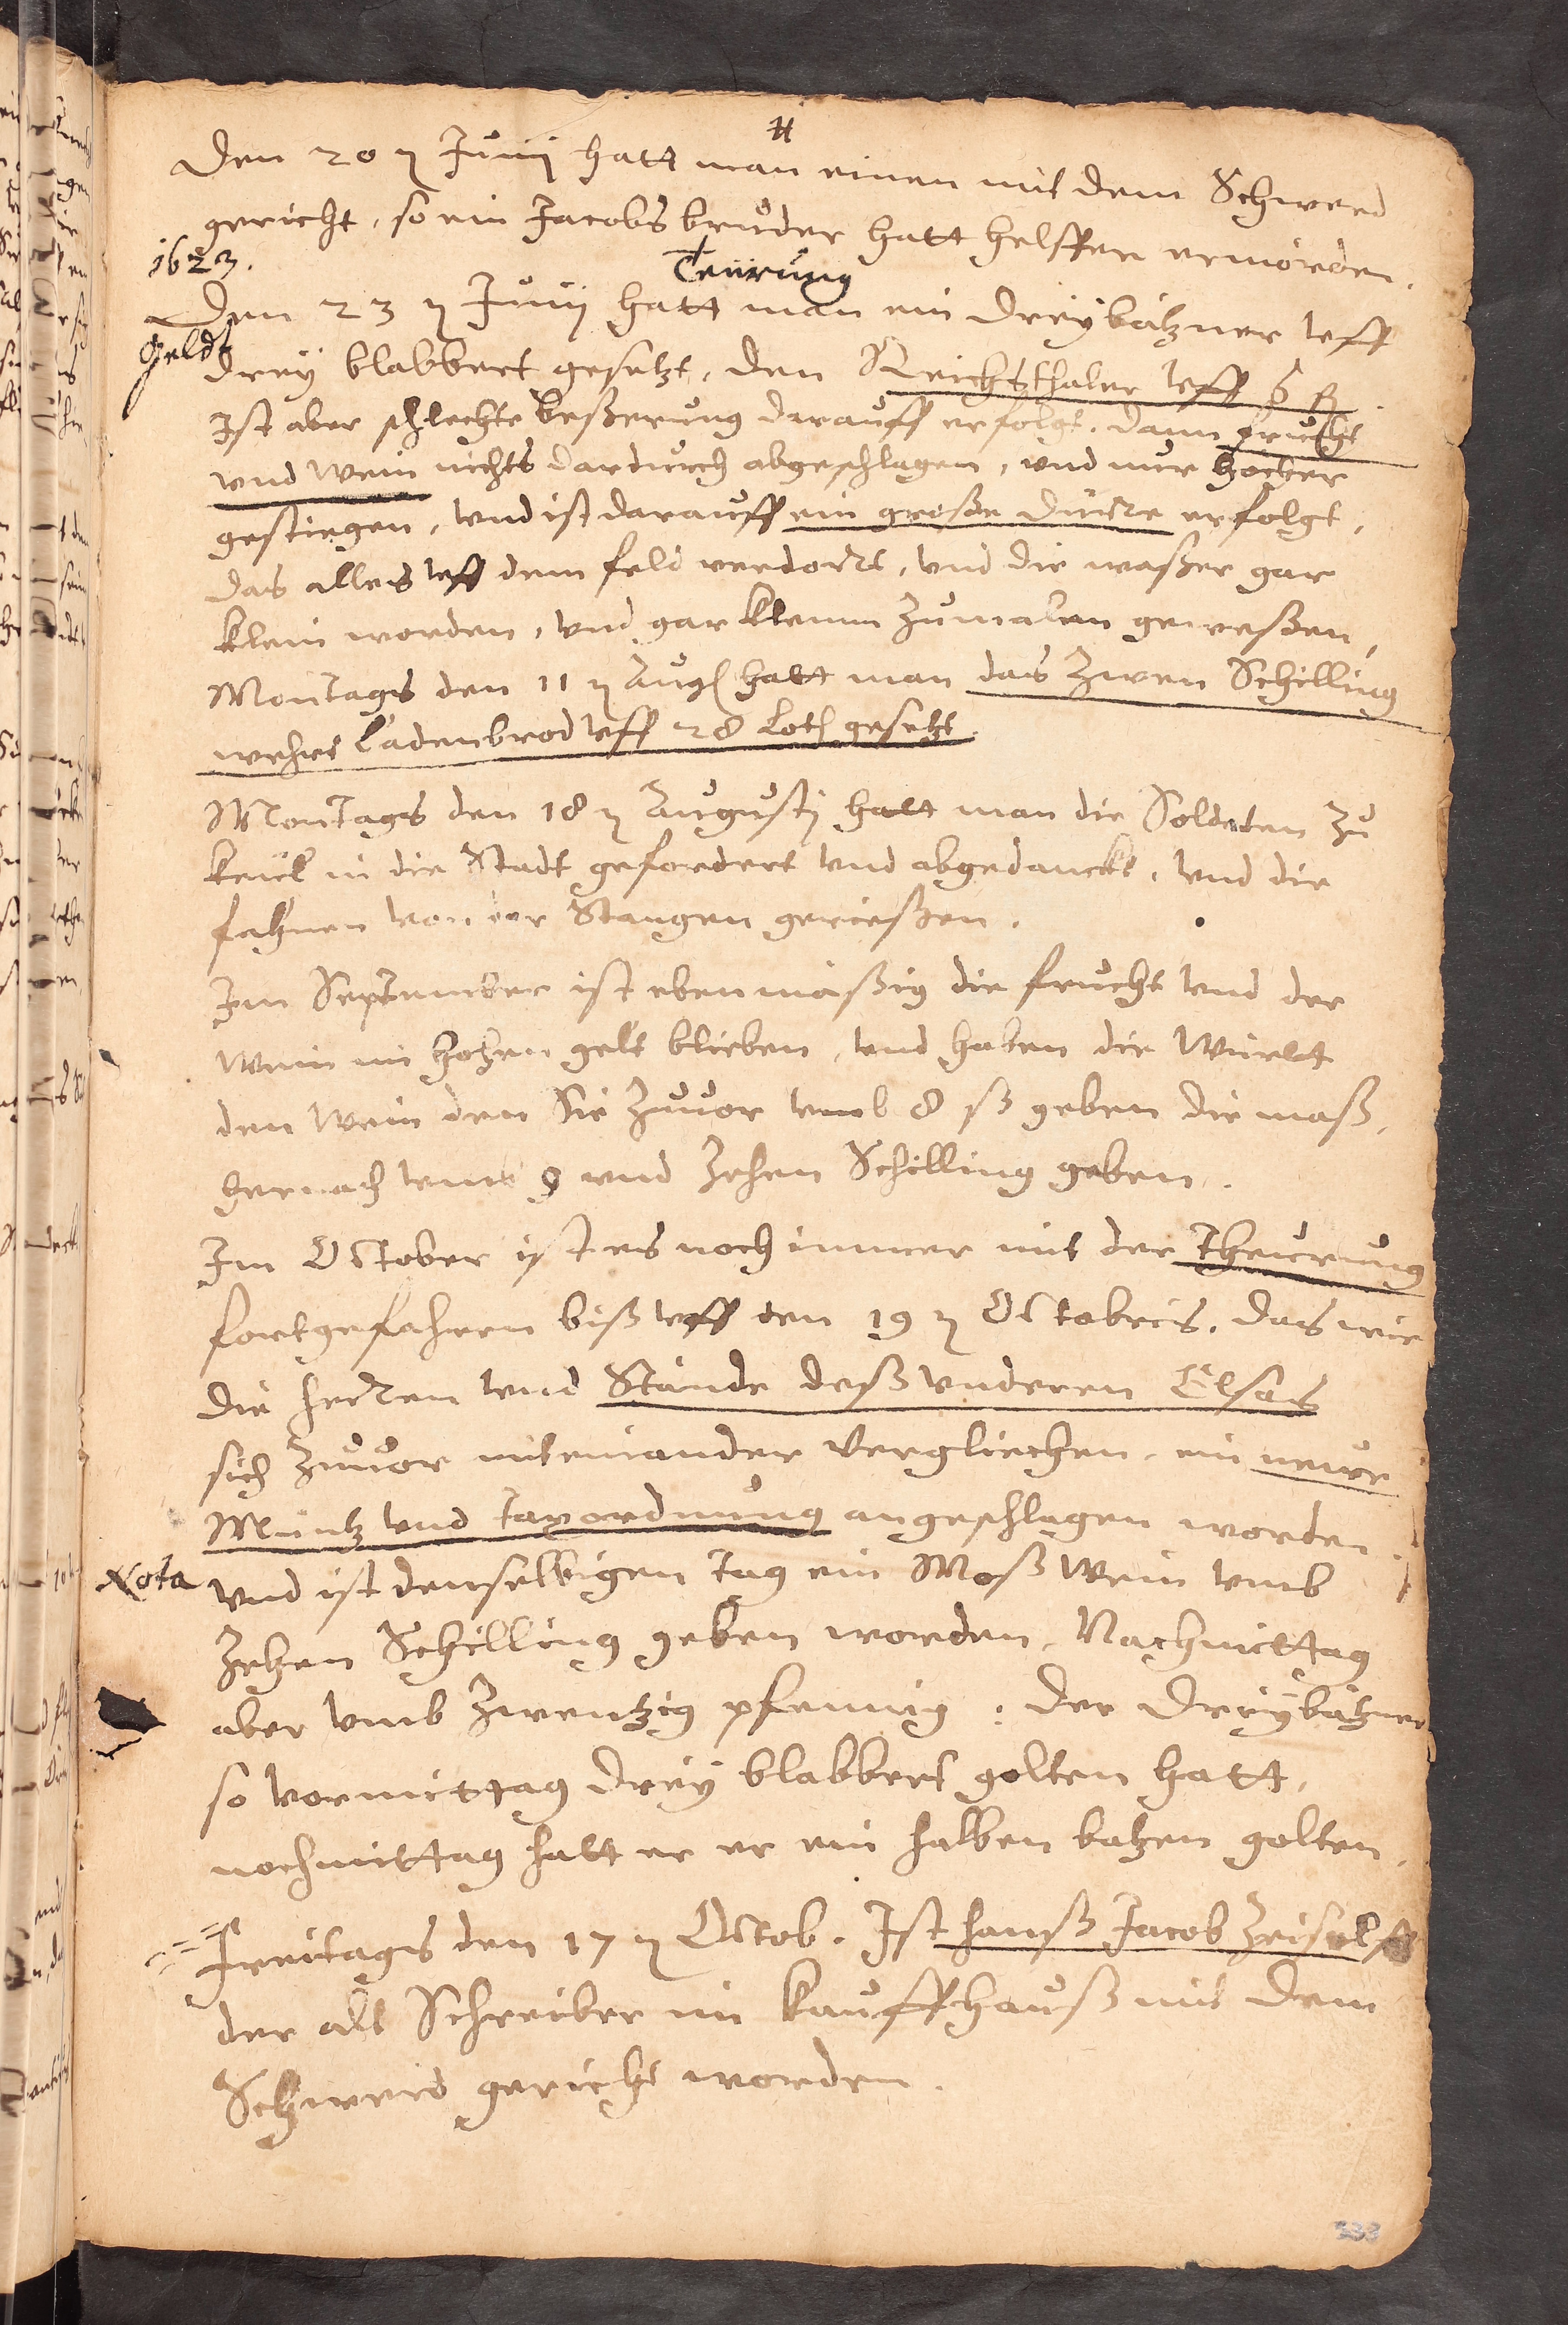 Den 20 n Junij hatt man einen mit dem Schwerd
gericht, so ein Jacobs bruder hatt helffen ermorden.
1623.
Teurung
Den 23 n Junij hatt man ein dreybätzner vff
Geldt
drey blabbert gesetzt, den Reichsthaler vff
Ist aber schlechte beßerung darauff erfolgt, dann frucht
vnd Wein nichts dardurch abgeschlagen, vnd nur hocher
gestiegen, vnd ist darauff ein große dürre erfolgt,
das alles vff dem feld verdorrt, vnd die waßer gar
klein worden, vnd gar klemm zumalen geweßen,
Montags den 11 n Aug hatt man das Zwen Schilling
wehrt Ladenbrod vff 28 Loth gesetzt.
Montags den 18 n Augustj hatt man die Soldaten zu
Keül in die Stadt gefordert vnd abgedanckt, vnd die
fahnen von der Stangen gerießen.
Im September ist ebenmäßig die frucht vnd der
Wein im hohen gelt blieben, vnd haben die Württ
den Wein den Sie zuuor vmb 8 ß geben die maß,
hernach vmb 9 vnd zehen Schilling geben.
Im October ist es noch immer mit der Theurung
fortgefahren biß vff den 19 n Octobris, das wie
die herren vnd Stände deß vnderen Elsas
sich zuuor miteinander vergliechen, ein neuwe
Müntz vnd taxordnung angeschlagen worden.
Nota
vnd ist denselbigen tag ein Moß Wein vmb
zehen Schilling geben worden, Nachmittag
aber vmb zwentzig pfennig: der Dreybätzner
so vormittag drey blabbert golten hatt,
nochmittag hatt er er ein halben batzen golten.
Freitags den 17 n Octob. Ist hanß Jacob
der alt Schreiber im Kauffhauß mit dem
Schwerd gericht worden.
333